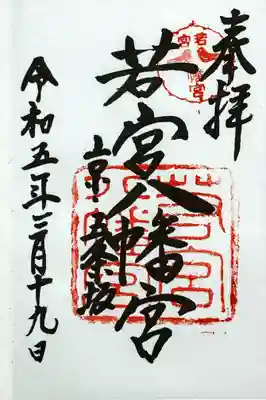 奉拝
若宮八幡宮
五条坂
令和五年三月十九日
若宮
八幡宮